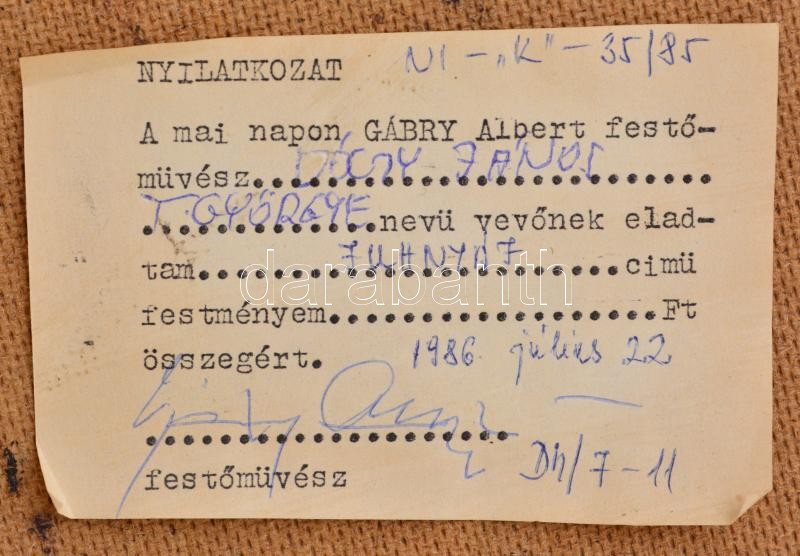 NYILATKOZAT NI - „K" - 35/85
A mai napon GÁBRY Albert festő-
müvész..DÓCZY JÁNOS............
T.GYÖRGYE............nevü vevőnek elad-
tam........JUHNYÁJ........cimü
darabanth
festményem....................Ft
összegért. 1986 július 22
festőmüvész Dh/7-11